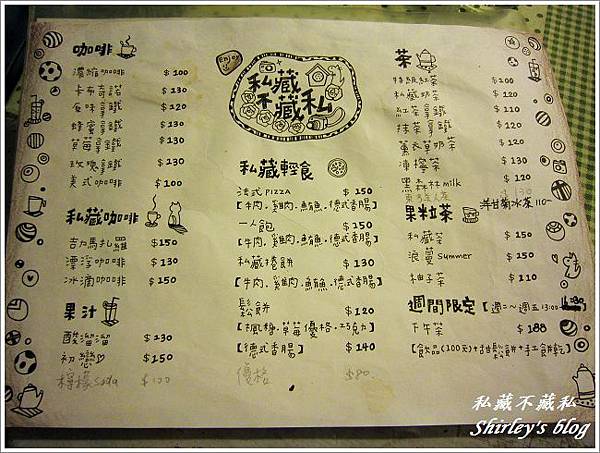 咖啡
濃縮咖啡 $100
卡布奇諾 $130
原味拿鐵 $120
蜂蜜拿鐵 $130
草莓拿鐵 $130
玫瑰拿鐵 $130
美式咖啡 $100
私藏咖啡
吉力馬扎羅 $150
漂浮咖啡 $150
冰滴咖啡 $150
果汁
酸溜溜 $130
初戀 $150
檸檬Soda $100
Enjoy
私藏
不藏私
私藏輕食
法式PIZZA $150
【牛肉.雞肉.鮪魚.德式香腸】
一人飽 $150
【牛肉.雞肉.鮪魚.德式香腸】
私藏捲餅 $130
【牛肉.雞肉.鮪魚.德式香腸】
鬆餅 $120
【楓糖.草莓優格.巧克力】
【德式香腸】 $140
優格 $80
茶
特級紅茶 $100
私藏奶茶 $120
紅茶拿鐵 $110
抹茶拿鐵 $120
薰衣草奶茶 $120
凍檸茶 $130
黑森林milk $130
果粒茶
洋甘菊冰茶 110
私藏茶 $150
浪蔓Summer $150
柚子茶 $110
週間限定【週二~週五13:00~
下午茶 $188
【飲品(100元)+甜鬆餅+手工餅乾】
私藏不藏私
Shirley's blog